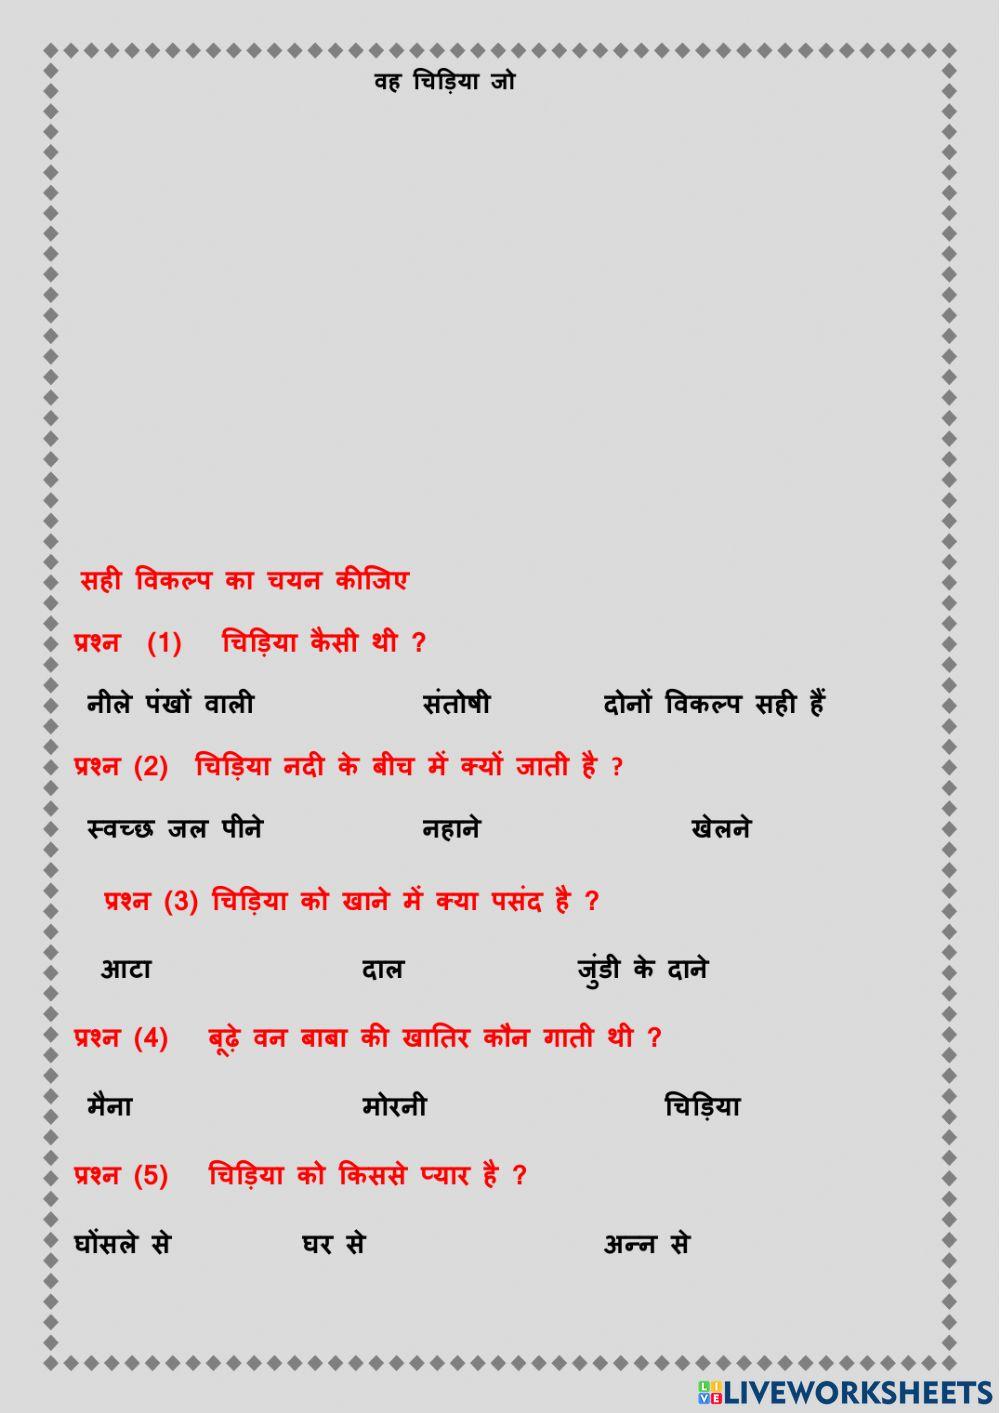 वह चिड़िया जो
सही विकल्प का चयन कीजिए
प्रश्न (1) चिड़िया कैसी थी ?
नीले पंखों वाली संतोषी दोनों विकल्प सही हैं
प्रश्न (2) चिड़िया नदी के बीच में क्यों जाती है ?
स्वच्छ जल पीने नहाने खेलने
प्रश्न (3) चिड़िया को खाने में क्या पसंद है ?
आटा दाल जुंडी के दाने
प्रश्न (4) बूढ़े वन बाबा की खातिर कौन गाती थी ?
मैना मोरनी चिड़िया
प्रश्न (5) चिड़िया को किससे प्यार है ?
घोंसले से घर से अन्न से
LIVE LIVEWORKSHEETS